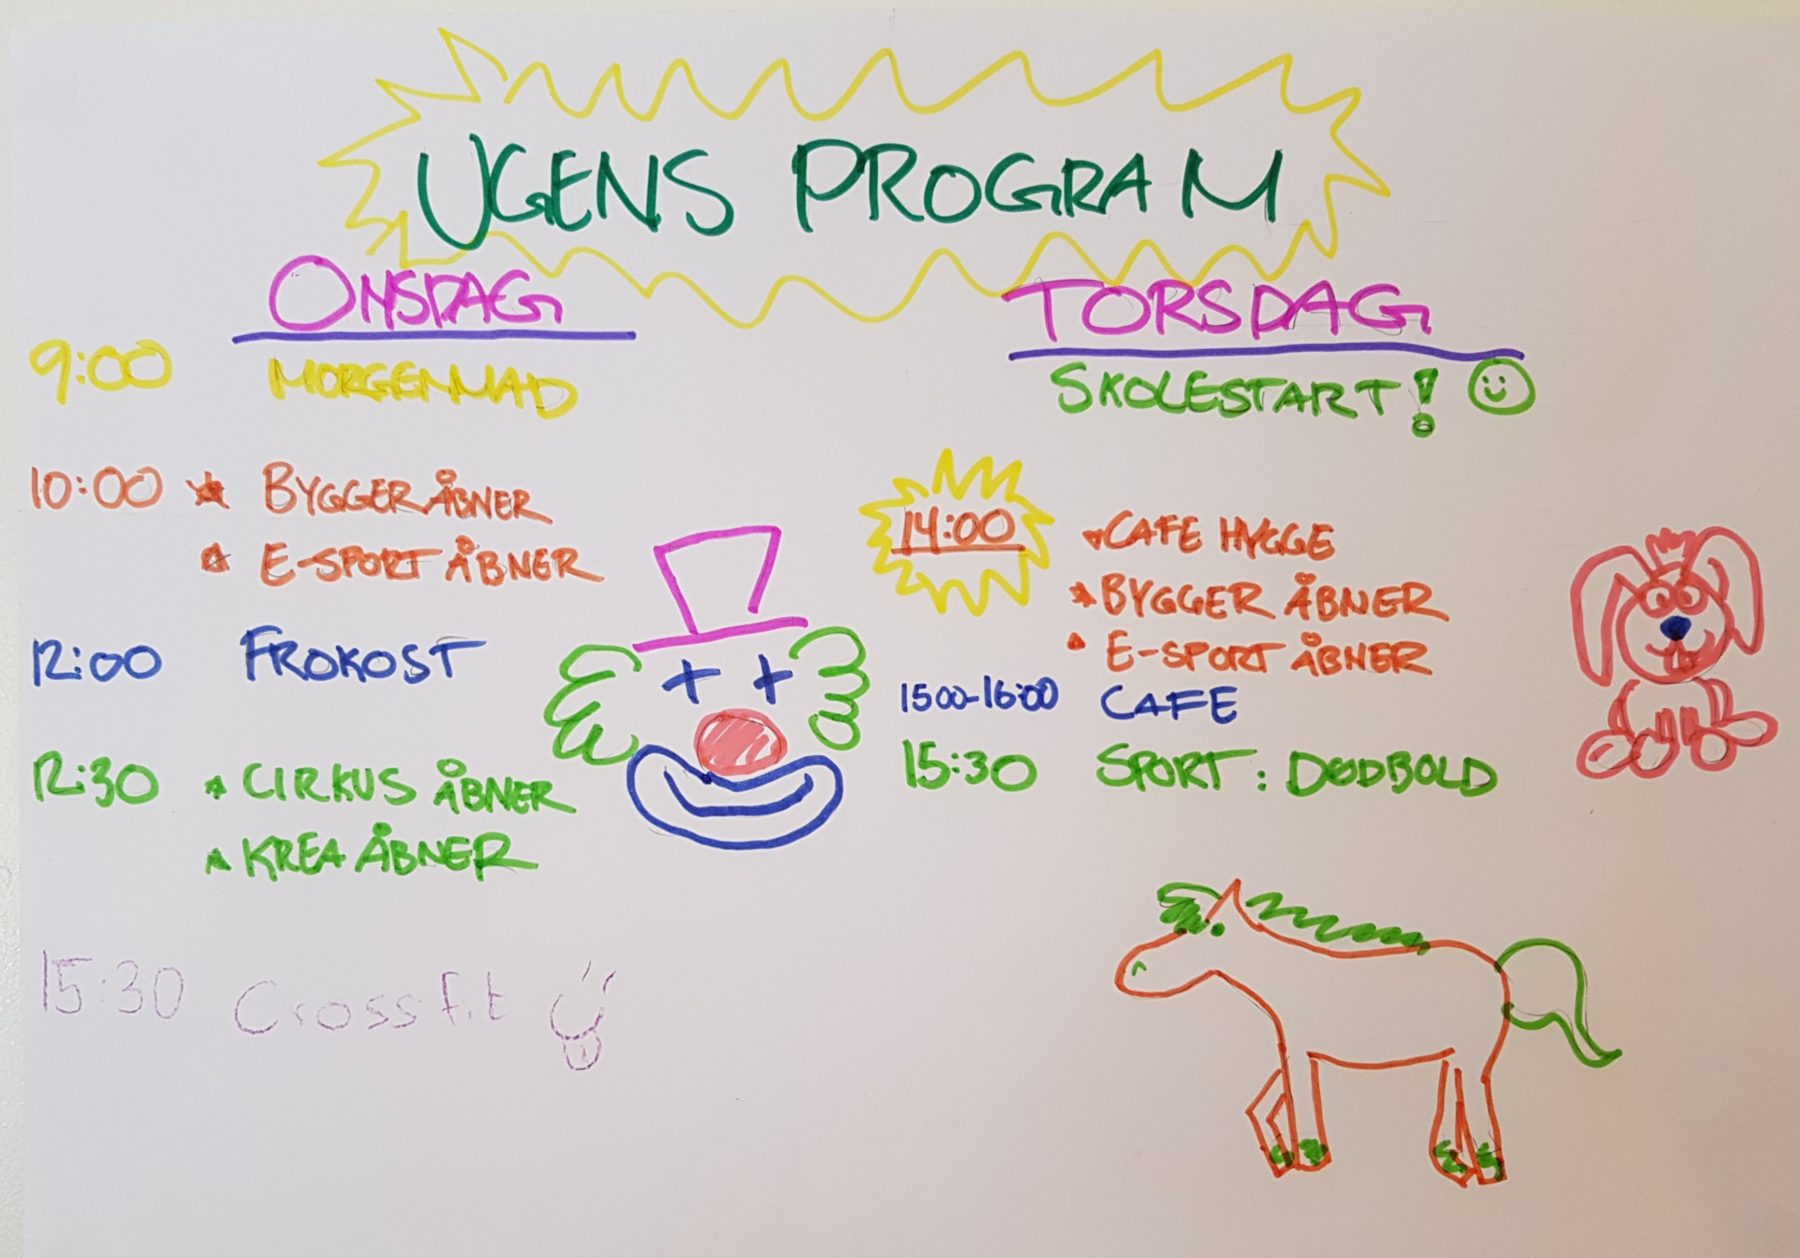 UGENS PROGRAM
ONSDAG
9:00 MORGENMAD
10:00 BYGGER ÅBNER
E-SPORT ÅBNER
12:00 FROKOST
12:30 CIRKUS ÅBNER
KREA ÅBNER
15:30 Crossfit
TORSDAG
SKOLESTART!
14:00 CAFE HYGGE
BYGGER ÅBNER
E-SPORT ÅBNER
1500-16:00 CAFE
15:30 SPORT: DØDBOLD